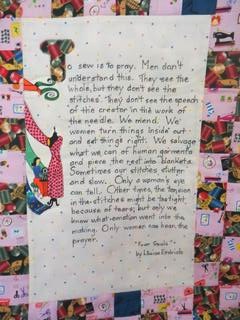 To sew is to pray. Men don't
understand this. They see the
whole, but they don't see the
stitches. They don't see the speech
of the creator in the work of
the needle. We mend. We
women turn things inside out
and set things right. We salvage
what we can of human garments
and piece the rest into blankets.
Sometimes our stitches stutter
and slow. Only a woman's eye
can tell. Other times, the tension
in the stitches might be too tight
because of tears, but only we
know what emotion went into the
making. Only women can hear the
prayer.
"Four Souls"
by Louise Erdrich